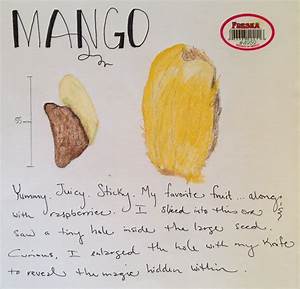 MANGO
FRESKA
55
Yummy. Juicy. Sticky. My favorite fruit... along
with raspberries. I sliced into this one &
saw a tiny hole inside the large seed.
Curious, I enlarged the hole with my knife
to reveal the magic hidden within.